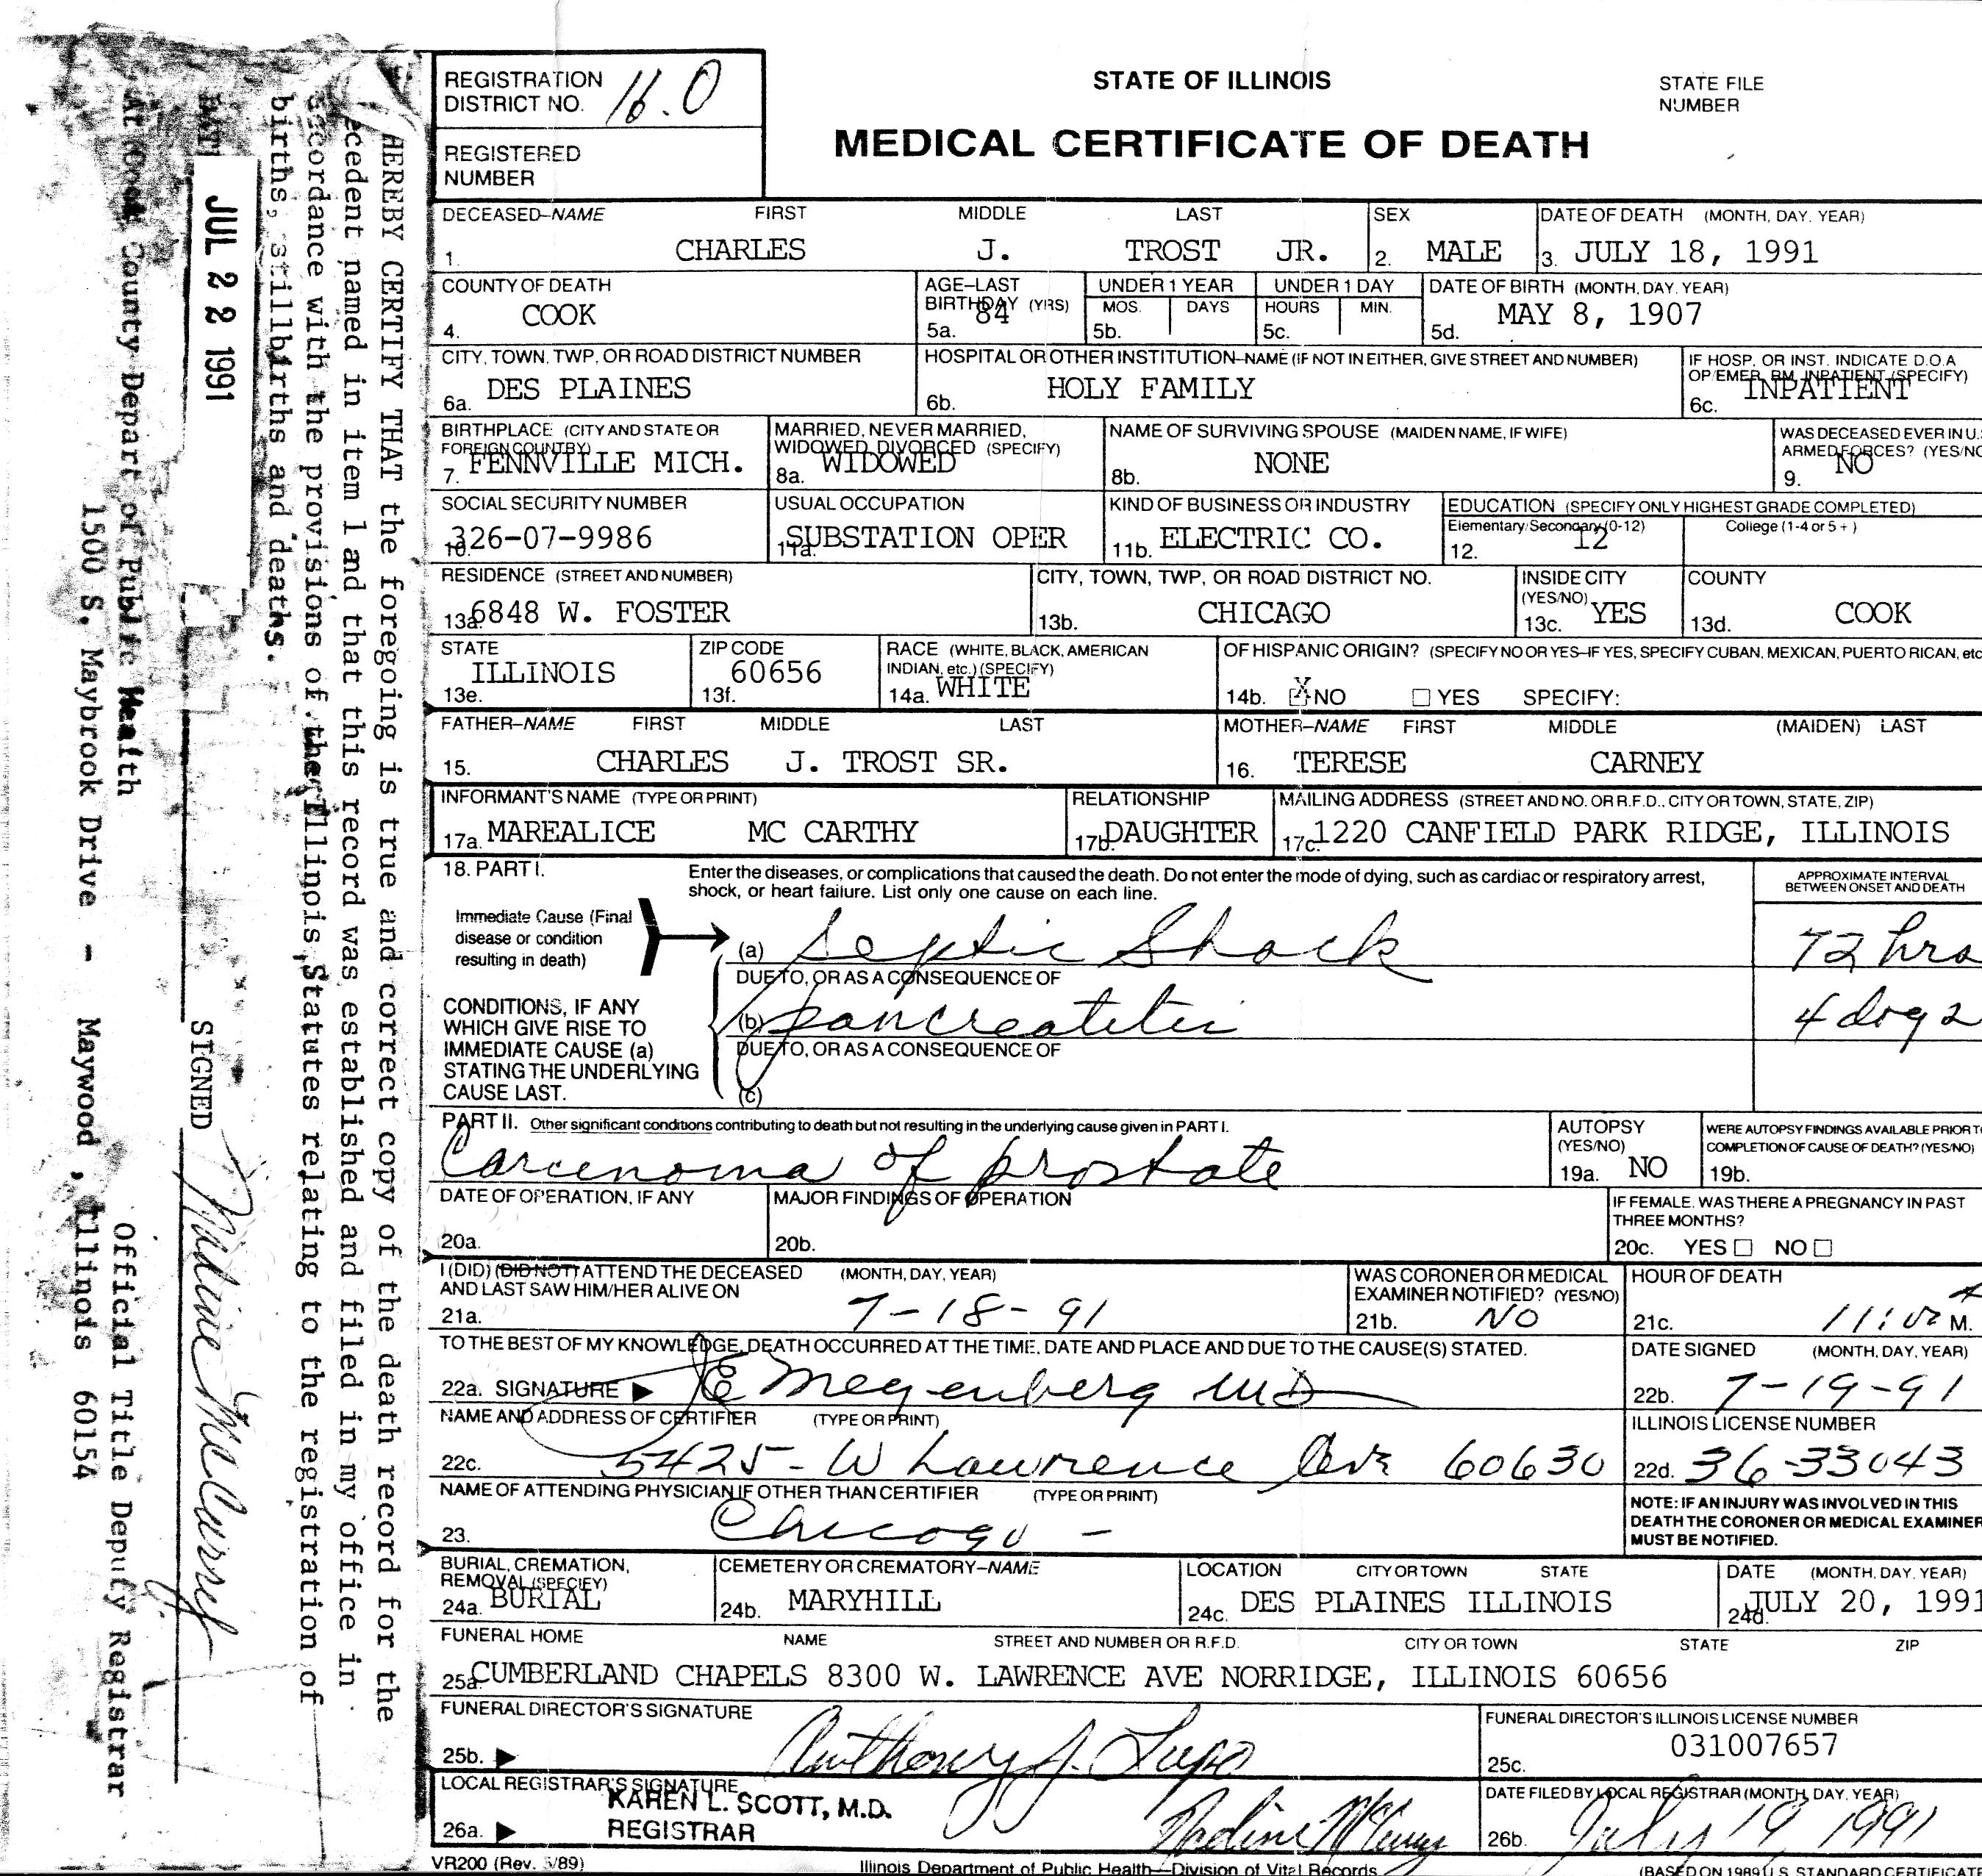 REGISTRATION DISTRICT NO. 16.0
REGISTERED NUMBER
STATE OF ILLINOIS
STATE FILE NUMBER
MEDICAL CERTIFICATE OF DEATH
DECEASED–NAME FIRST MIDDLE LAST SEX DATE OF DEATH (MONTH, DAY, YEAR)
1. CHARLES J. TROST JR. 2. MALE 3. JULY 18, 1991
COUNTY OF DEATH AGE–LAST BIRTHDAY (YRS) UNDER 1 YEAR UNDER 1 DAY DATE OF BIRTH (MONTH, DAY, YEAR)
MOS. DAYS HOURS MIN.
4. COOK 5a. 84 5b. 5c. 5d. MAY 8, 1907
CITY, TOWN, TWP, OR ROAD DISTRICT NUMBER HOSPITAL OR OTHER INSTITUTION–NAME (IF NOT IN EITHER, GIVE STREET AND NUMBER) IF HOSP. OR INST. INDICATE D.O.A. OP/EMER. RM. INPATIENT (SPECIFY)
6a. DES PLAINES 6b. HOLY FAMILY 6c. INPATIENT
BIRTHPLACE (CITY AND STATE OR FOREIGN COUNTRY) MARRIED, NEVER MARRIED, WIDOWED, DIVORCED (SPECIFY) NAME OF SURVIVING SPOUSE (MAIDEN NAME, IF WIFE) WAS DECEASED EVER IN U. ARMED FORCES? (YES/NO
7. FENNVILLE MICH. 8a. WIDOWED 8b. NONE 9. NO
SOCIAL SECURITY NUMBER USUAL OCCUPATION KIND OF BUSINESS OR INDUSTRY EDUCATION (SPECIFY ONLY HIGHEST GRADE COMPLETED)
Elementary/Secondary (0-12) College (1-4 or 5+)
10. 326-07-9986 11a. SUBSTATION OPER 11b. ELECTRIC CO. 12. 12
RESIDENCE (STREET AND NUMBER) CITY, TOWN, TWP, OR ROAD DISTRICT NO. INSIDE CITY (YES/NO) COUNTY
13a. 6848 W. FOSTER 13b. CHICAGO 13c. YES 13d. COOK
STATE ZIP CODE RACE (WHITE, BLACK, AMERICAN INDIAN, etc.) (SPECIFY) OF HISPANIC ORIGIN? (SPECIFY NO OR YES–IF YES, SPECIFY CUBAN, MEXICAN, PUERTO RICAN, etc
13e. ILLINOIS 13f. 60656 14a. WHITE 14b. X NO YES SPECIFY:
FATHER–NAME FIRST MIDDLE LAST MOTHER–NAME FIRST MIDDLE (MAIDEN) LAST
15. CHARLES J. TROST SR. 16. TERESE CARNEY
INFORMANT'S NAME (TYPE OR PRINT) RELATIONSHIP MAILING ADDRESS (STREET AND NO. OR R.F.D., CITY OR TOWN, STATE, ZIP)
17a. MAREALICE MC CARTHY 17b. DAUGHTER 17c. 1220 CANFIELD PARK RIDGE, ILLINOIS
18. PART I. Enter the diseases, or complications that caused the death. Do not enter the mode of dying, such as cardiac or respiratory arrest, shock, or heart failure. List only one cause on each line.
APPROXIMATE INTERVAL BETWEEN ONSET AND DEATH
Immediate Cause (Final disease or condition resulting in death) (a) Septic Shock 72 hrs
DUE TO, OR AS A CONSEQUENCE OF
CONDITIONS, IF ANY WHICH GIVE RISE TO IMMEDIATE CAUSE (a) STATING THE UNDERLYING CAUSE LAST.
(b) pancreatitis 4 days
DUE TO, OR AS A CONSEQUENCE OF
(c)
PART II. Other significant conditions contributing to death but not resulting in the underlying cause given in PART I.
Carcinoma of prostate
AUTOPSY (YES/NO) WERE AUTOPSY FINDINGS AVAILABLE PRIOR TO COMPLETION OF CAUSE OF DEATH? (YES/NO)
19a. NO 19b.
DATE OF OPERATION, IF ANY MAJOR FINDINGS OF OPERATION IF FEMALE, WAS THERE A PREGNANCY IN PAST THREE MONTHS?
20a. 20b. 20c. YES NO
I (DID) (DID NOT) ATTEND THE DECEASED AND LAST SAW HIM/HER ALIVE ON (MONTH, DAY, YEAR) WAS CORONER OR MEDICAL EXAMINER NOTIFIED? (YES/NO) HOUR OF DEATH
21a. 7-18-91 21b. NO 21c. 11:02 A M.
TO THE BEST OF MY KNOWLEDGE, DEATH OCCURRED AT THE TIME, DATE AND PLACE AND DUE TO THE CAUSE(S) STATED. DATE SIGNED (MONTH, DAY, YEAR)
22a. SIGNATURE Megenberg MD 22b. 7-19-91
NAME AND ADDRESS OF CERTIFIER (TYPE OR PRINT) ILLINOIS LICENSE NUMBER
22c. 5425 - W Lawrence Ave 60630 22d. 36-33043
NAME OF ATTENDING PHYSICIAN IF OTHER THAN CERTIFIER (TYPE OR PRINT)
23. Chicago -
NOTE: IF AN INJURY WAS INVOLVED IN THIS DEATH THE CORONER OR MEDICAL EXAMINER MUST BE NOTIFIED.
BURIAL, CREMATION, REMOVAL (SPECIFY) CEMETERY OR CREMATORY–NAME LOCATION CITY OR TOWN STATE DATE (MONTH, DAY, YEAR)
24a. BURIAL 24b. MARYHILL 24c. DES PLAINES ILLINOIS 24d. JULY 20, 1991
FUNERAL HOME NAME STREET AND NUMBER OR R.F.D. CITY OR TOWN STATE ZIP
25a. CUMBERLAND CHAPELS 8300 W. LAWRENCE AVE NORRIDGE, ILLINOIS 60656
FUNERAL DIRECTOR'S SIGNATURE FUNERAL DIRECTOR'S ILLINOIS LICENSE NUMBER
25b. Anthony J. Lupo 25c. 031007657
LOCAL REGISTRAR'S SIGNATURE DATE FILED BY LOCAL REGISTRAR (MONTH, DAY, YEAR)
26a. KAREN L. SCOTT, M.D. REGISTRAR 26b. July 19 1991
VR200 (Rev. 5/89) Illinois Department of Public Health—Division of Vital Records (BASED ON 1989 U.S. STANDARD CERTIFICATE
HEREBY CERTIFY THAT the foregoing is true and correct copy of the death record for the
cedent named in item 1 and that this record was established and filed in my office in
accordance with the provisions of the Illinois Statutes relating to the registration of
births, stillbirths and deaths.
DATE JUL 22 1991 SIGNED Nadine McCurrey
At Cook County Department of Public Health Official Title Deputy Registrar
1500 S. Maybrook Drive - Maywood, Illinois 60154